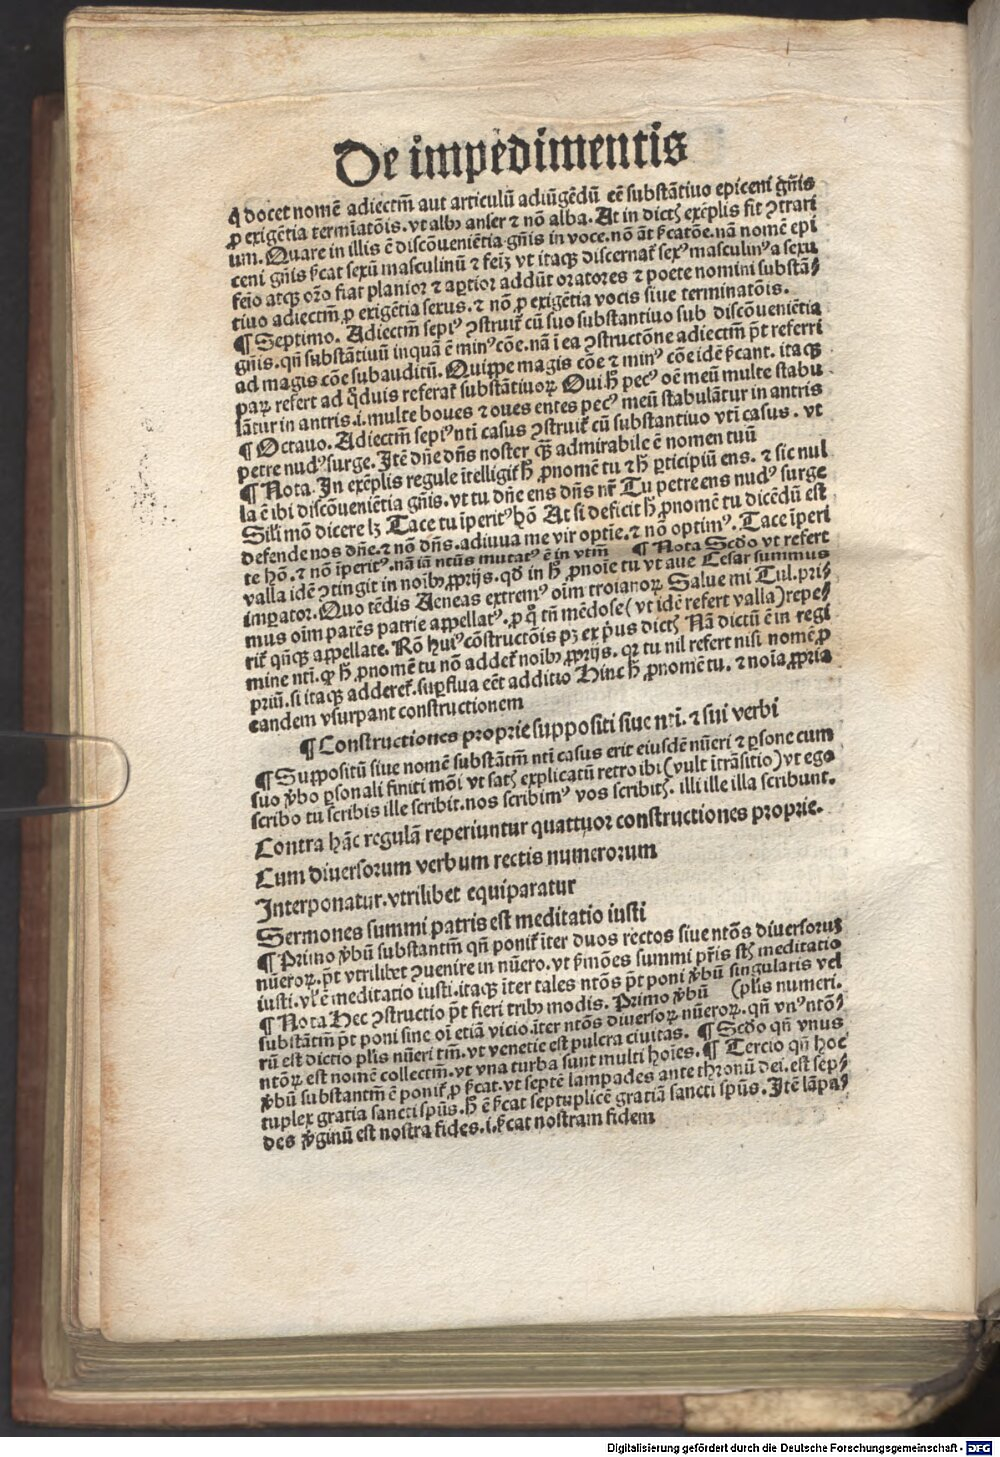 De impedimentis
q docet nomē adiectm̄ aut articulū adiūgēdū eē substātiuo epiceni gn̄is
ꝓ exigētia termīatōis. vt albꝰ anser ⁊ nō alba. At in dictꝭ exēplis fit ꝯtrari
um. Quare in illis ē discōueniētia gn̄is in voce. nō āt ſc̄atōe. nā nomē epi
ceni gn̄is ſc̄at sexū masculinū ⁊ feīꝫ vt itaqꝫ discernat᷑ sexꝰ masculinꝰ a sexu
feīo atqꝫ or̄o fiat planior ⁊ aptior addūt oratores ⁊ poete nomini substā⸗
tiuo adiectm̄ ꝓ exigētia sexus. ⁊ nō ꝓ exigētia vocis siue terminatōis.
¶ Septimo. Adiectm̄ sepiꝰ ꝯstruit᷑ cū suo substantiuo sub discōueniētia
gn̄is. qn̄ substātiuū inquā ē minꝰ cōe. nā ī ea ꝯstructōne adiectm̄ pt̄ referri
ad magis cōe subauditū. Quippe magis cōe ⁊ minꝰ cōe idē ſc̄ant. itaqꝫ
paꝝ refert ad qd̄uis referat᷑ substātiuoꝝ Oui.h̄ pecꝰ oē meū multe stabu
lātur in antris .i. multe boues ⁊ oues entes pecꝰ meū stabulātur in antris
¶ Octauo. Adiectm̄ sepiꝰ nti casus ꝯstruit᷑ cū substantiuo vti casus. vt
petre nudꝰ surge. Itē dn̄e dn̄s noster qꝫ̄ admirabile ē nomen tuū
¶ Nota. In exēplis regule ītelligit᷑ h̄ ꝓnomē tu ⁊ h̄ ꝑticipiū ens. ⁊ sic nul
la ē ibi discōueniētia gn̄is. vt tu dn̄e ens dn̄s nr̄ Tu petre ens nudꝰ surge
Sili mō dicere lꝫ Tace tu īperitꝰ hō At si deficit h̄ ꝓnomē tu dicēdū est
defende nos dn̄e. ⁊ nō dn̄s. adiuua me vir optīe. ⁊ nō optimꝰ. Tace īperi
te hō. ⁊ nō īperitꝰ. nā iā ntūs mutatꝰ ē in vtm̄ ¶ Nota Scd̄o vt refert
valla idē ꝯtingit in noībꝰ ꝓprijs. qd̄ in h̄ ꝓnoīe tu vt aue Cesar summus
imꝑator. Quo tēdis Aeneas extremꝰ oīm troianoꝝ Salue mi Tul. pri⸗
mus oīm parēs patrie appellatꝰ. ꝓ q̄ tn̄ mēdose (vt idē refert valla) repe⸗
rit᷑ qn̄qꝫ appellate. Rō huiꝰ cōstructōis pꝫ ex pᷤus dictꝭ Nā dictū ē in regi
mine nti. ꝙ h̄ ꝓnomē tu nō addet᷑ noībꝰ ꝓprijs. qꝛ tu nil refert nisi nomē ꝓ
priū. si itaqꝫ adderet᷑. suꝑflua eēt additio Hinc h̄ ꝓnomē tu. ⁊ noīa ꝓpria
eandem vsurpant constructionem
¶ Constructiones proprie suppositi siue nti. ⁊ sui verbi
¶ Suppositū siue nomē substātm̄ nti casus erit eiusdē nūeri ⁊ ꝑsone cum
suo v̄bo ꝑsonali finiti mōi vt satꝭ explicatū retro ibi (vult ītrāsitio) vt ego
scribo tu scribis ille scribit. nos scribimꝰ vos scribitꝭ. illi ille illa scribunt.
Contra hāc regulā reperiuntur quattuor constructiones proprie.
Cum diuersorum verbum rectis numerorum
Interponatur. vtrilibet equiparatur
Sermones summi patris est meditatio iusti
¶ Primo v̄bū substantm̄ qn̄ ponit᷑ īter duos rectos siue ntōs diuersoruꝫ
nūeroꝝ. pt̄ vtrilibet ꝯuenire in nūero. vt ẜmōes summi pr̄is sūt meditatio
iusti. vl̓ ē meditatio iusti. itaqꝫ īter tales ntōs pt̄ poni v̄bū singularis vel
¶ Nota Hec ꝯstructio pt̄ fieri tribꝰ modis. Primo v̄bū (pl̄is numeri.
substātm̄ pt̄ poni sine oī etiā vicio īter ntōs diuersoꝝ nūeroꝝ. qn̄ vnꝰ ntō⸗
rū est dictio pl̄is nūeri tm̄. vt venetie est pulcra ciuitas. ¶ Scd̄o qn̄ vnus
ntōꝝ est nomē collectm̄. vt vna turba sunt multi hoīes. ¶ Tercio qn̄ hoc
v̄bū substantm̄ ē ponit᷑ ꝓ ſc̄at. vt septē lampades ante thronū dei. est sep⸗
tuplex gratia sancti spūs. h̄ ē ſc̄at septuplicē gratiā sancti spūs. Itē lāpa⸗
des v̄ginū est nostra fides .i. ſc̄at nostram fidem
Digitalisierung gefördert durch die Deutsche Forschungsgemeinschaft - DFG